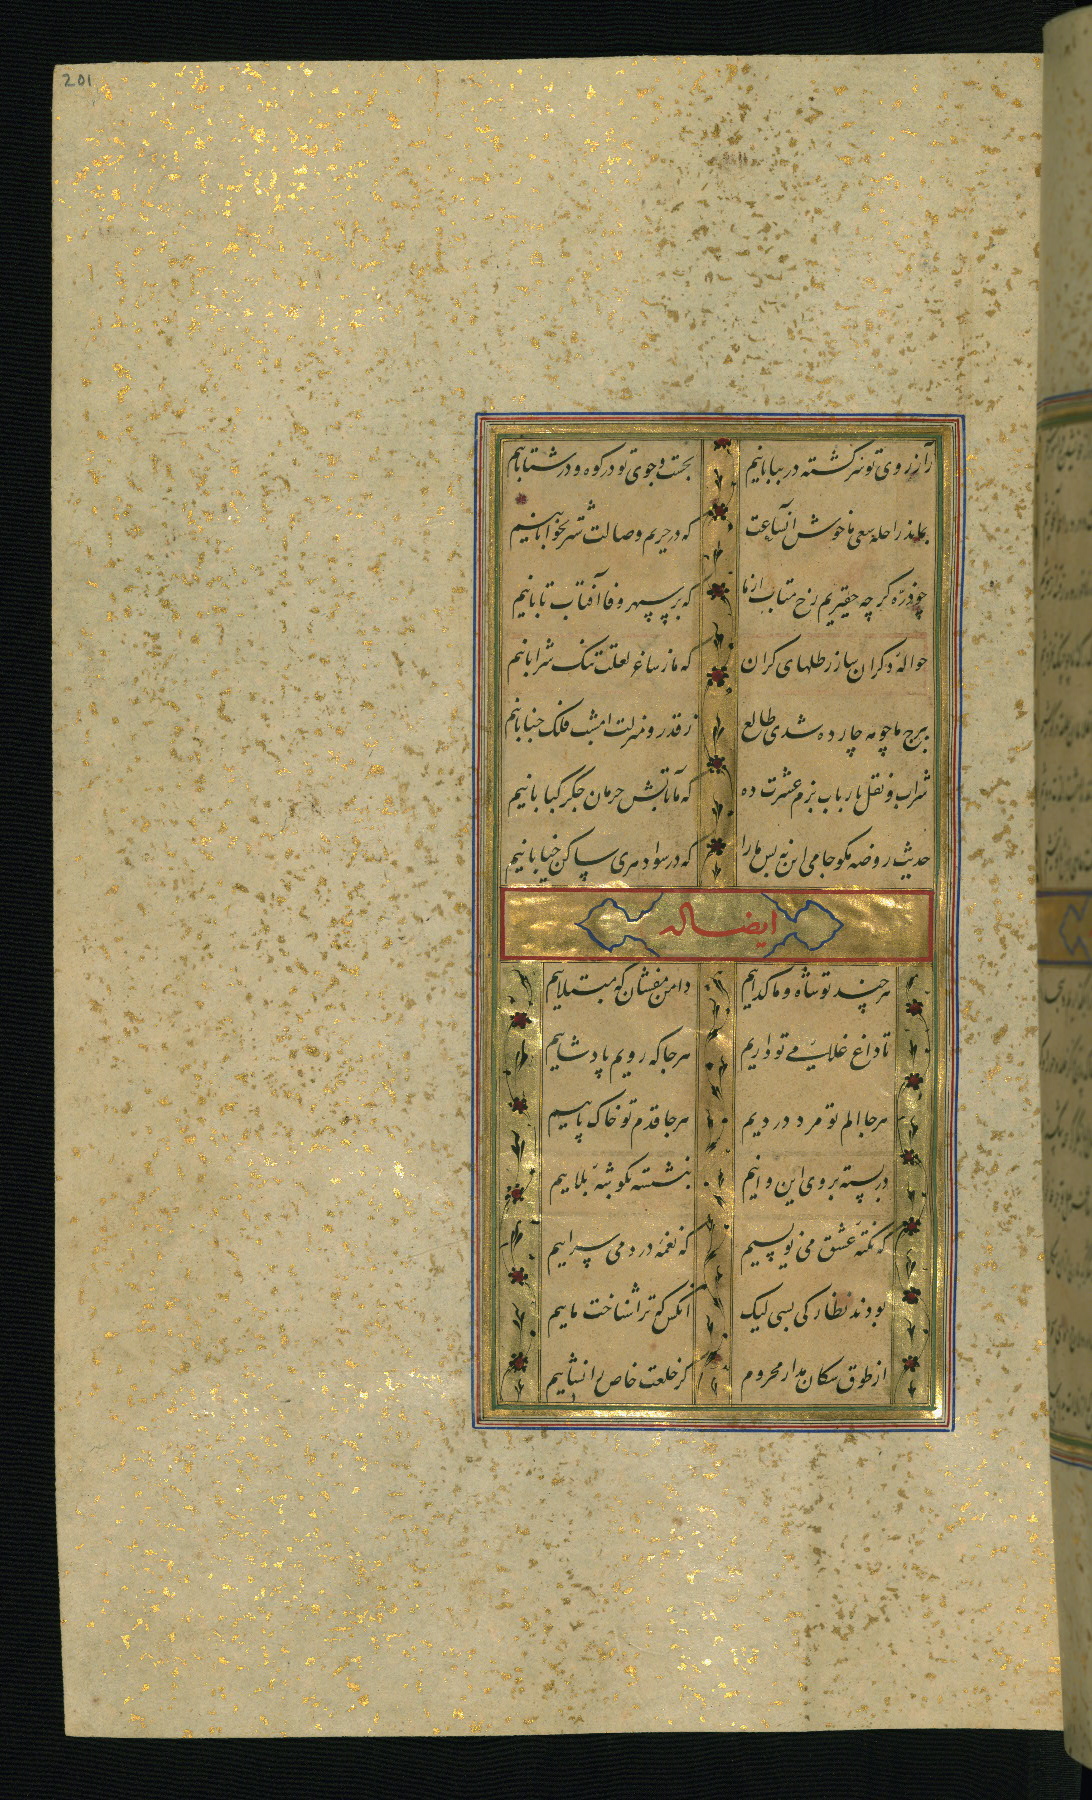 201
ز آرزوی تو سرگشته در بیابانیم بجست و جوی تو در کوه و در شتابانیم
بماند راحله سعی ما خوش آنساعت که در حریم وصالت شتر بخوابانیم
چو ذره گرچه حقیریم رخ متاب از ما که بر سپهر وفا آفتاب تابانیم
حواله دگران ساز رطلهای گران که ما ز ساغر لعلت تنک شرابانیم
ببرج ما چو مه چارده شدی طالع ز قدر و منزلت امشب فلک جنابانیم
شراب و نقل بارباب بزم عشرت ده که ما بآتش حرمان جگر کبابانیم
حدیث روضه مکو جامی این نه بس ما را که در سواد هری ساکن خیابانیم
ایضا له
هر چند تو شاه و ما کداییم دامن مفشان که مبتلاییم
تا داغ غلامی تو داریم هر جا که رویم پادشاییم
هر جا الم تو مرد دردیم هر جا قدم تو خاک پاییم
در بسته بروی این و آنیم بنشسته بکوشه بلاییم
که نکته عشق می نویسیم که نغمه درد می سراییم
بودند نظارکی بسی لیک آنکس که ترا شناخت ماییم
از طوق سکان مدار محروم کز خلعت خاص را نشاییم